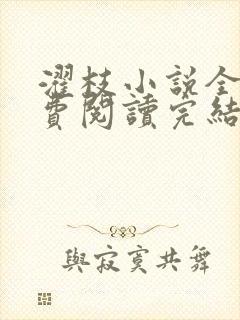 濯枝小說全
費閱讀完結
與寂寞共舞